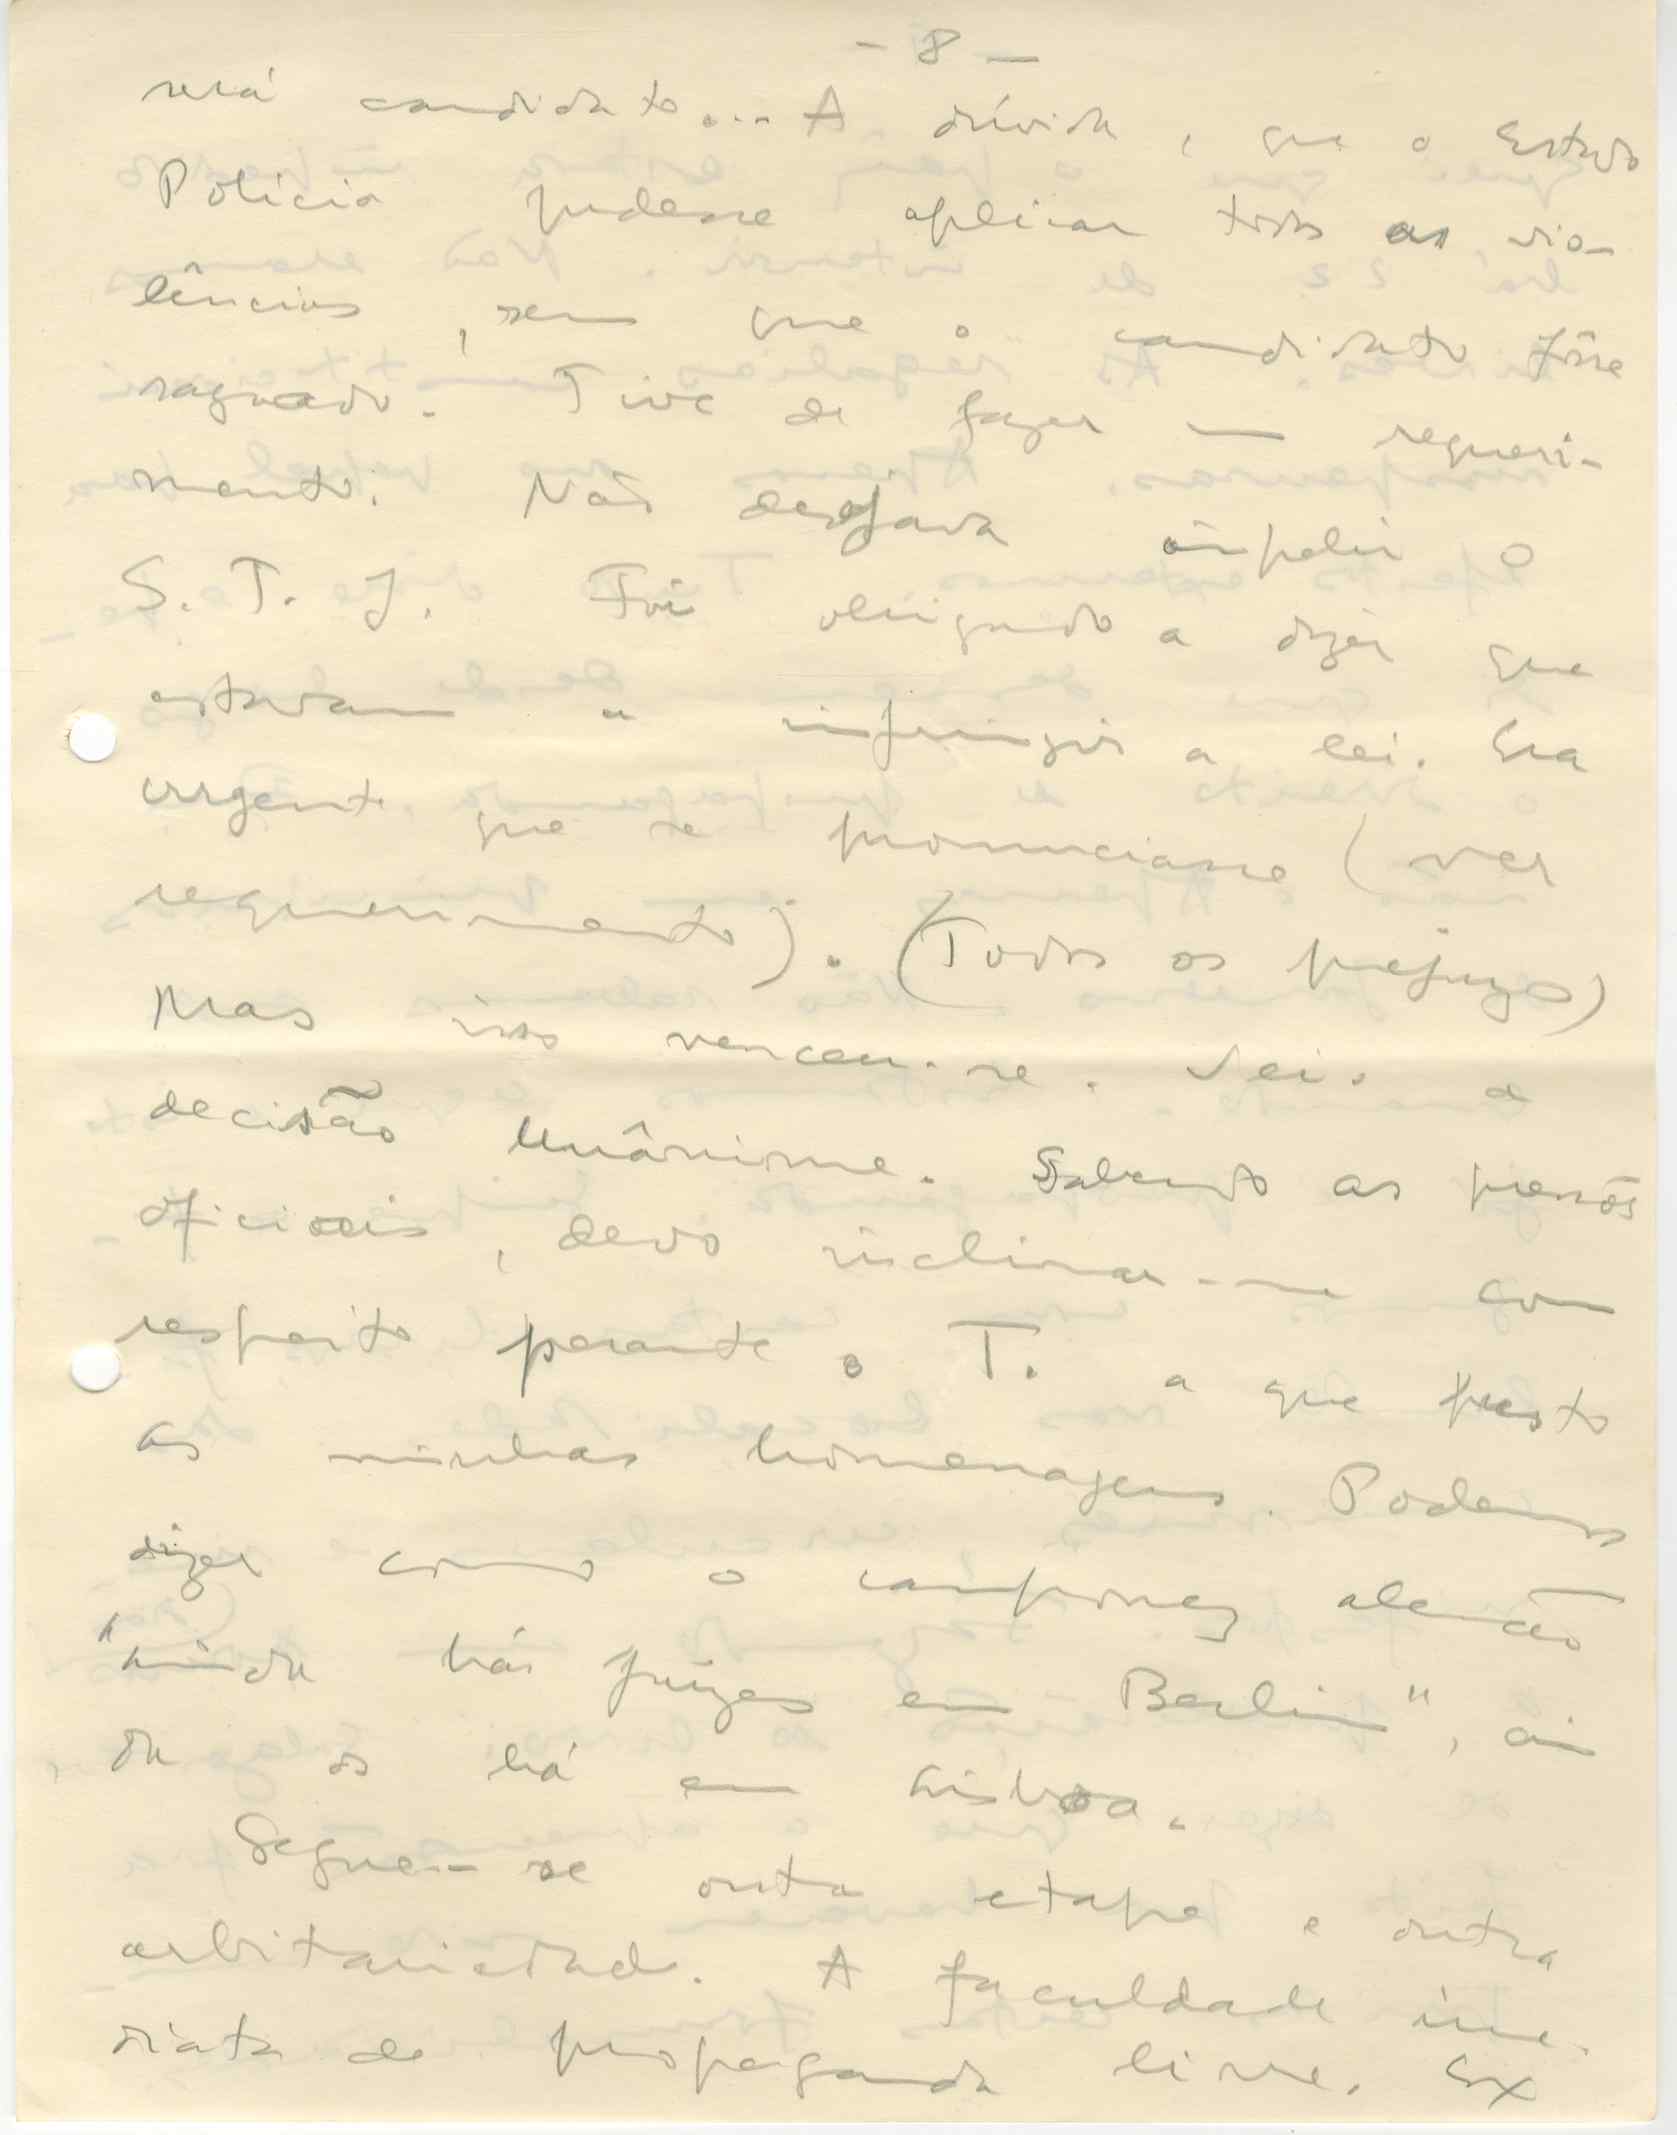 - 8 -
será candidato... A dúvida, que o Estado
Policia pudesse aplicar todas as vio-
lências, sem que o candidato fôsse
rasgado. Tive de fazer um requeri-
mento. Não desejava impelir o
S. T. J. Fui obrigado a dizer que
estavam a infringir a lei. Era
urgente que se pronunciasse (ver
requerimento). (Todos os prejuízos)
Mas isso venceu-se. Sei a
decisão unânime. Sabendo as pressões
oficiais, devo inclinar-me com
respeito perante o T. a que presto
as minhas homenagens. Podemos
dizer como o camponez alemão
"ainda há juízes em Berlim", ain
da os há em Lisboa.
Segue-se outra etapa e outra
arbitrariedade. A faculdade ime-
diata de propaganda livre. Ex